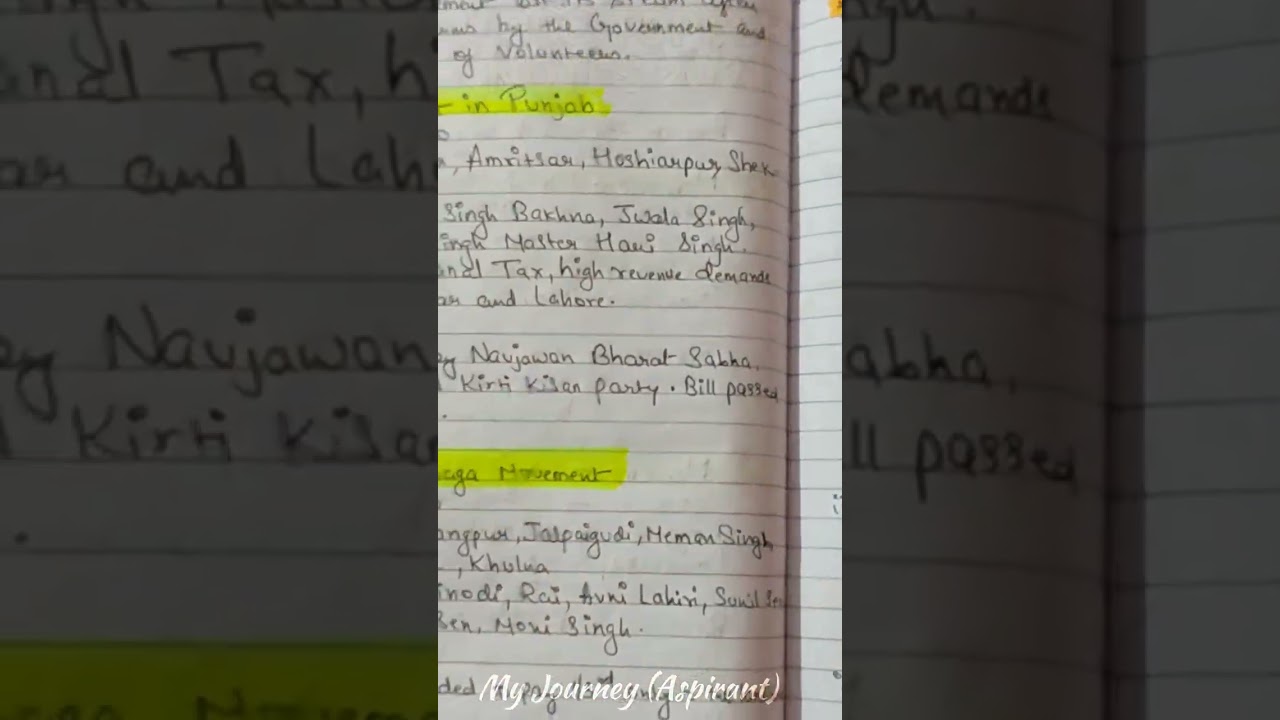 by the Government and
of Volunteers.
- in Punjab
, Amritsar, Hoshiarpur, Shek
Singh Bakhna, Jwala Singh,
ingh Master Hari Singh.
nal Tax, high revenue demands
ar and Lahore.
Navjawan Bharat Sabha,
Kirti Kisan party. Bill passed
aga Movement
angpur, Jalpaigudi, Meman Singh
, Khulna
inodi, Rai, Avni Lahiri, Sunil Sen
Sen, Moni Singh.
ded
My Journey (Aspirant)